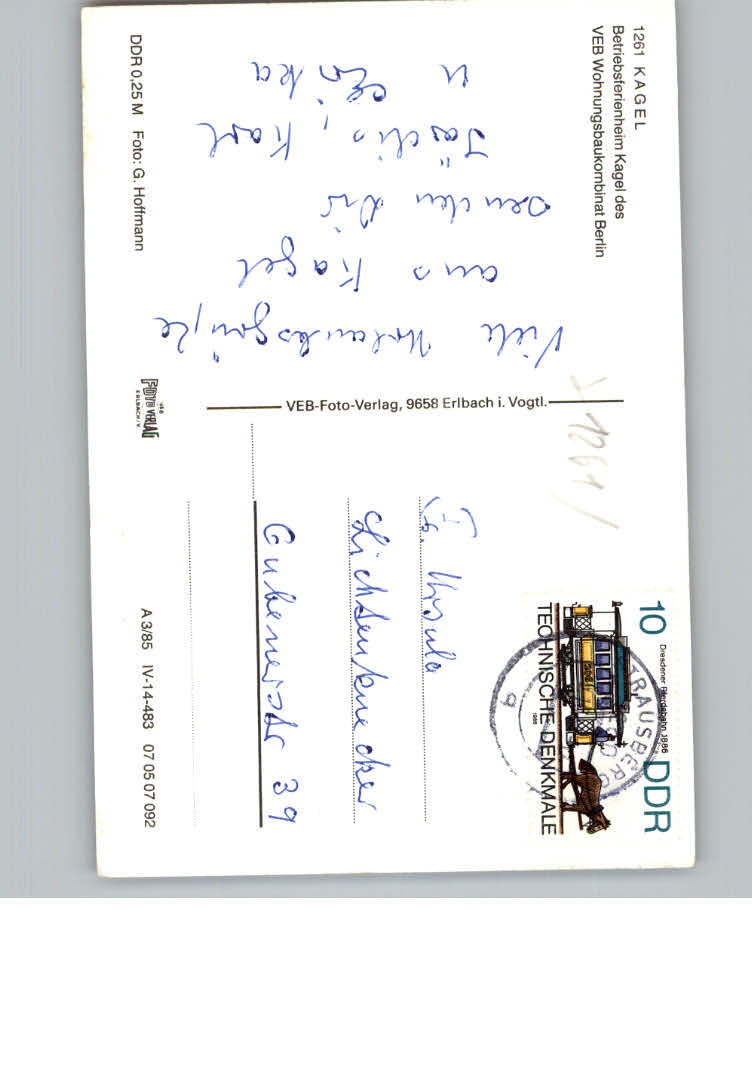 1261 KAGEL
Betriebsferienheim Kagel des
VEB Wohnungsbaukombinat Berlin
Viele Urlaubsgrüße
aus Kagel
senden Dir
Karl
u
DDR 0,25 M Foto: G. Hoffmann
VEB-Foto-Verlag, 9658 Erlbach i. Vogtl.
VEB
FOTO VERLAG
ERLBACH/V.
1261
Fr. Ursula
Lichtenknecker
Gubenerstr 39
A 3/85 IV-14-483 07 05 07 092
10 DDR
Dresdener Pferdebahn 1886
TECHNISCHE DENKMALE
1986
STRAUSBERG